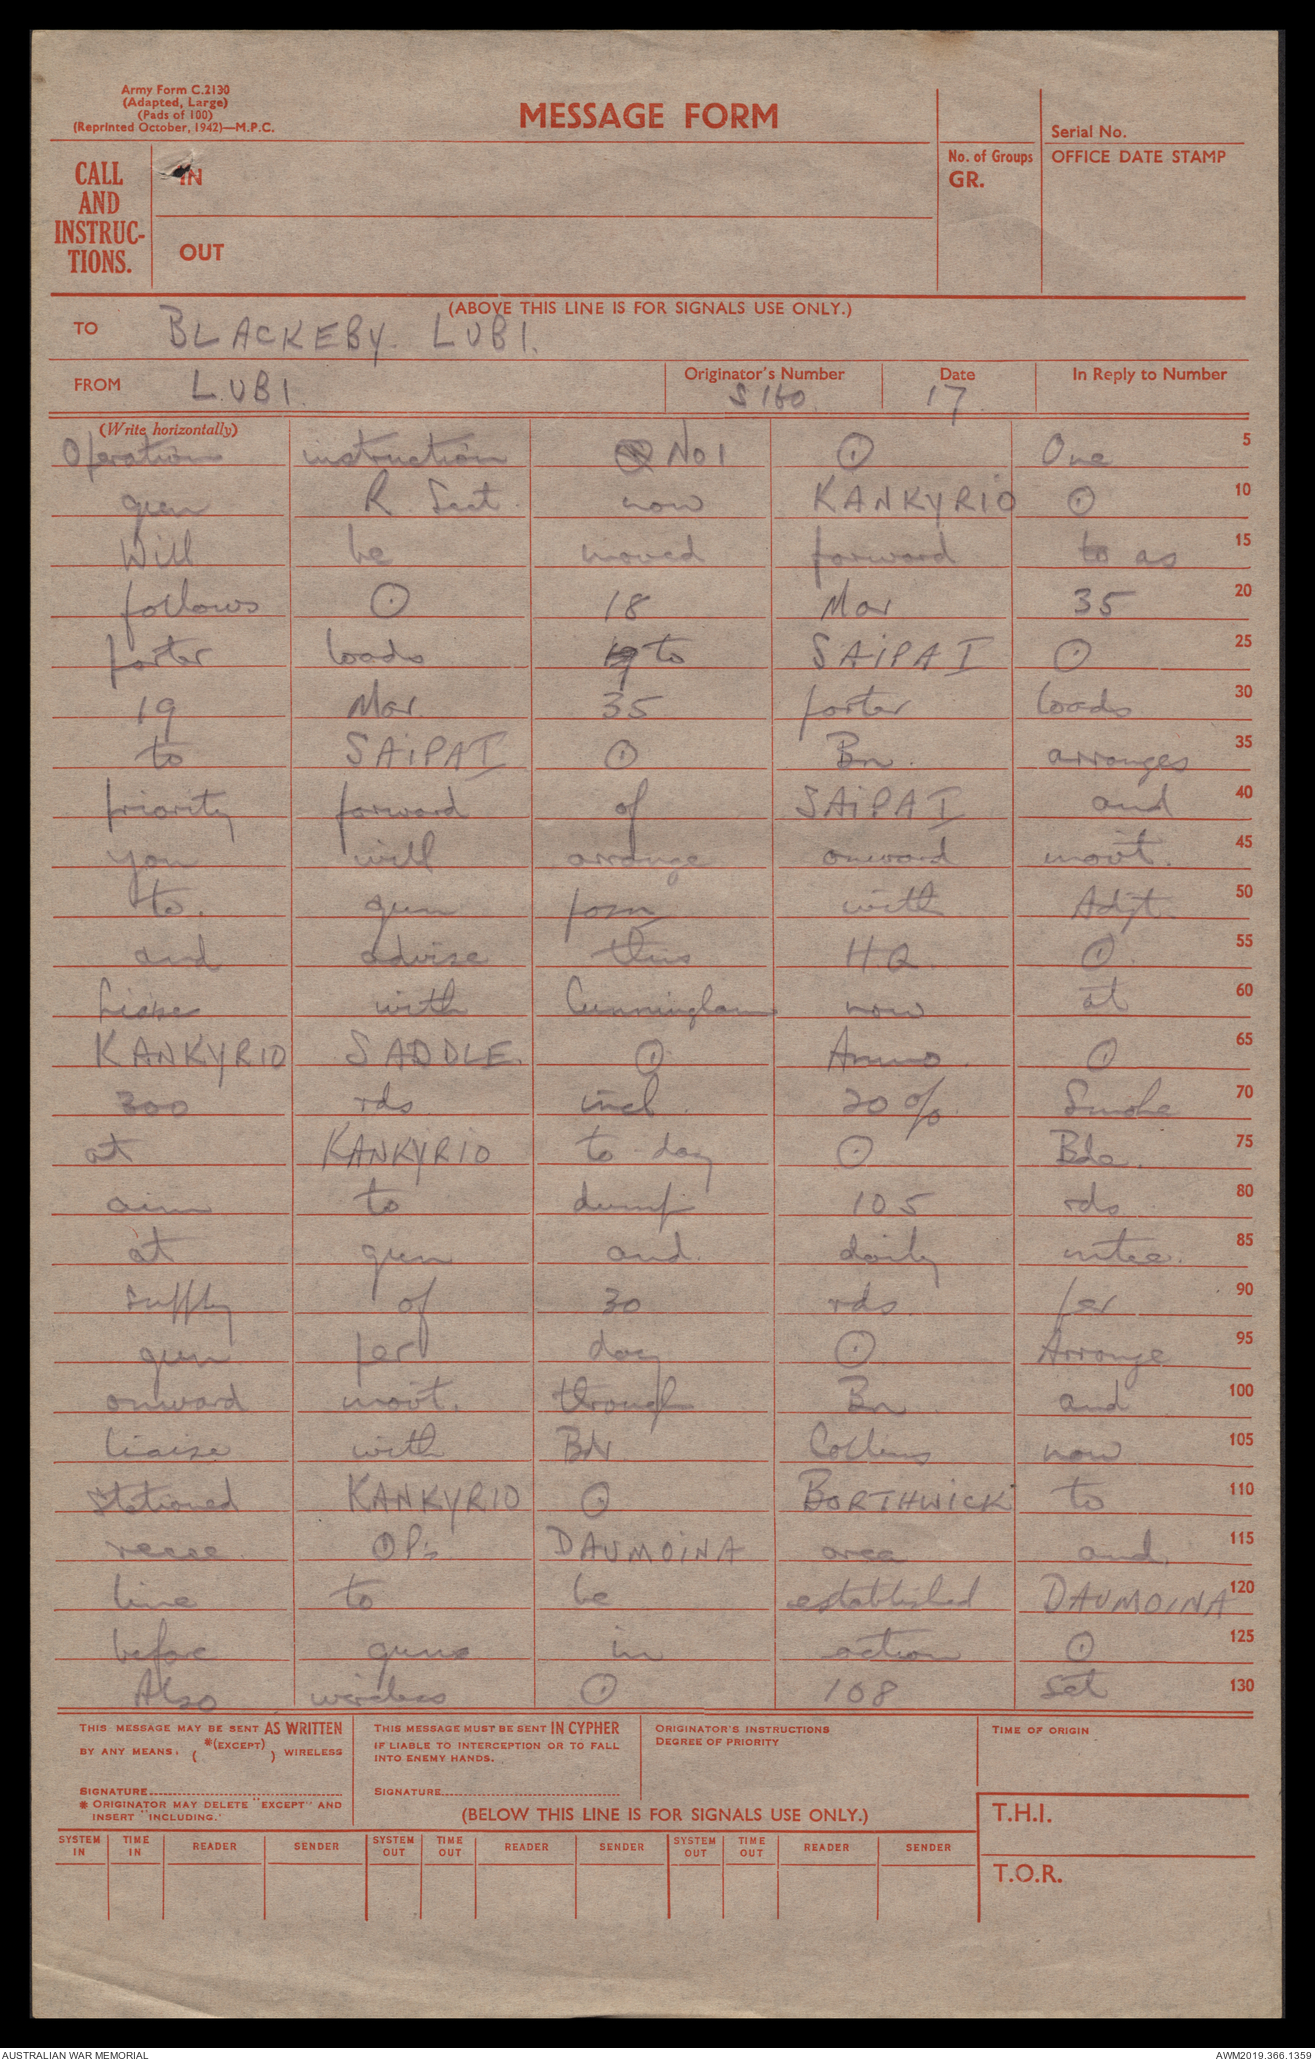 Army Form C.2130
(Adapted, Large)
(Pads of 100)
(Reprinted October, 1942)—M.P.C.
MESSAGE FORM
Serial No.
CALL
AND
INSTRUC-
TIONS.
IN
OUT
No. of Groups
GR.
OFFICE DATE STAMP
(ABOVE THIS LINE IS FOR SIGNALS USE ONLY.)
TO BLACKEBY LUBI.
FROM LUBI.
Originator's Number S160
Date 17
In Reply to Number
(Write horizontally)
Operation instruction No 1 ⊙ One 5
gun R. Sect. now KANKYRIO ⊙ 10
Will be moved forward to as 15
follows ⊙ 18 Mar 35 20
porter loads 19 to SAIPA I ⊙ 25
19 Mar 35 porter loads 30
to SAIPA I ⊙ Bn. arranges 35
priority forward of SAIPA I and 40
you will arrange onward movt. 45
to. gun posn with Adjt. 50
and advise this HQ. ⊙ 55
Liaise with Cunningham now at 60
KANKYRIO SADDLE. ⊙ Ammo. ⊙ 65
300 rds incl. 20%. Smoke 70
at KANKYRIO to-day ⊙ Bde. 75
aim to dump 105 rds 80
at gun and. daily 85
supply of 30 rds per 90
gun per day ⊙ Arrange 95
onward movt. through Bn and 100
liaise with BN. Collins now 105
stationed KANKYRIO ⊙ BORTHWICK to 110
recce OP's DAUMOINA area and 115
line to be established DAUMOINA 120
before guns in action ⊙ 125
Also wireless ⊙ 108 Set 130
THIS MESSAGE MAY BE SENT AS WRITTEN
BY ANY MEANS, ( *(EXCEPT) ) WIRELESS
SIGNATURE
* ORIGINATOR MAY DELETE "EXCEPT" AND
INSERT "INCLUDING."
THIS MESSAGE MUST BE SENT IN CYPHER
IF LIABLE TO INTERCEPTION OR TO FALL
INTO ENEMY HANDS.
SIGNATURE
ORIGINATOR'S INSTRUCTIONS
DEGREE OF PRIORITY
TIME OF ORIGIN
(BELOW THIS LINE IS FOR SIGNALS USE ONLY.)
T.H.I.
SYSTEM IN TIME IN READER SENDER SYSTEM OUT TIME OUT READER SENDER SYSTEM OUT TIME OUT READER SENDER
T.O.R.
AUSTRALIAN WAR MEMORIAL AWM2019.366.1359